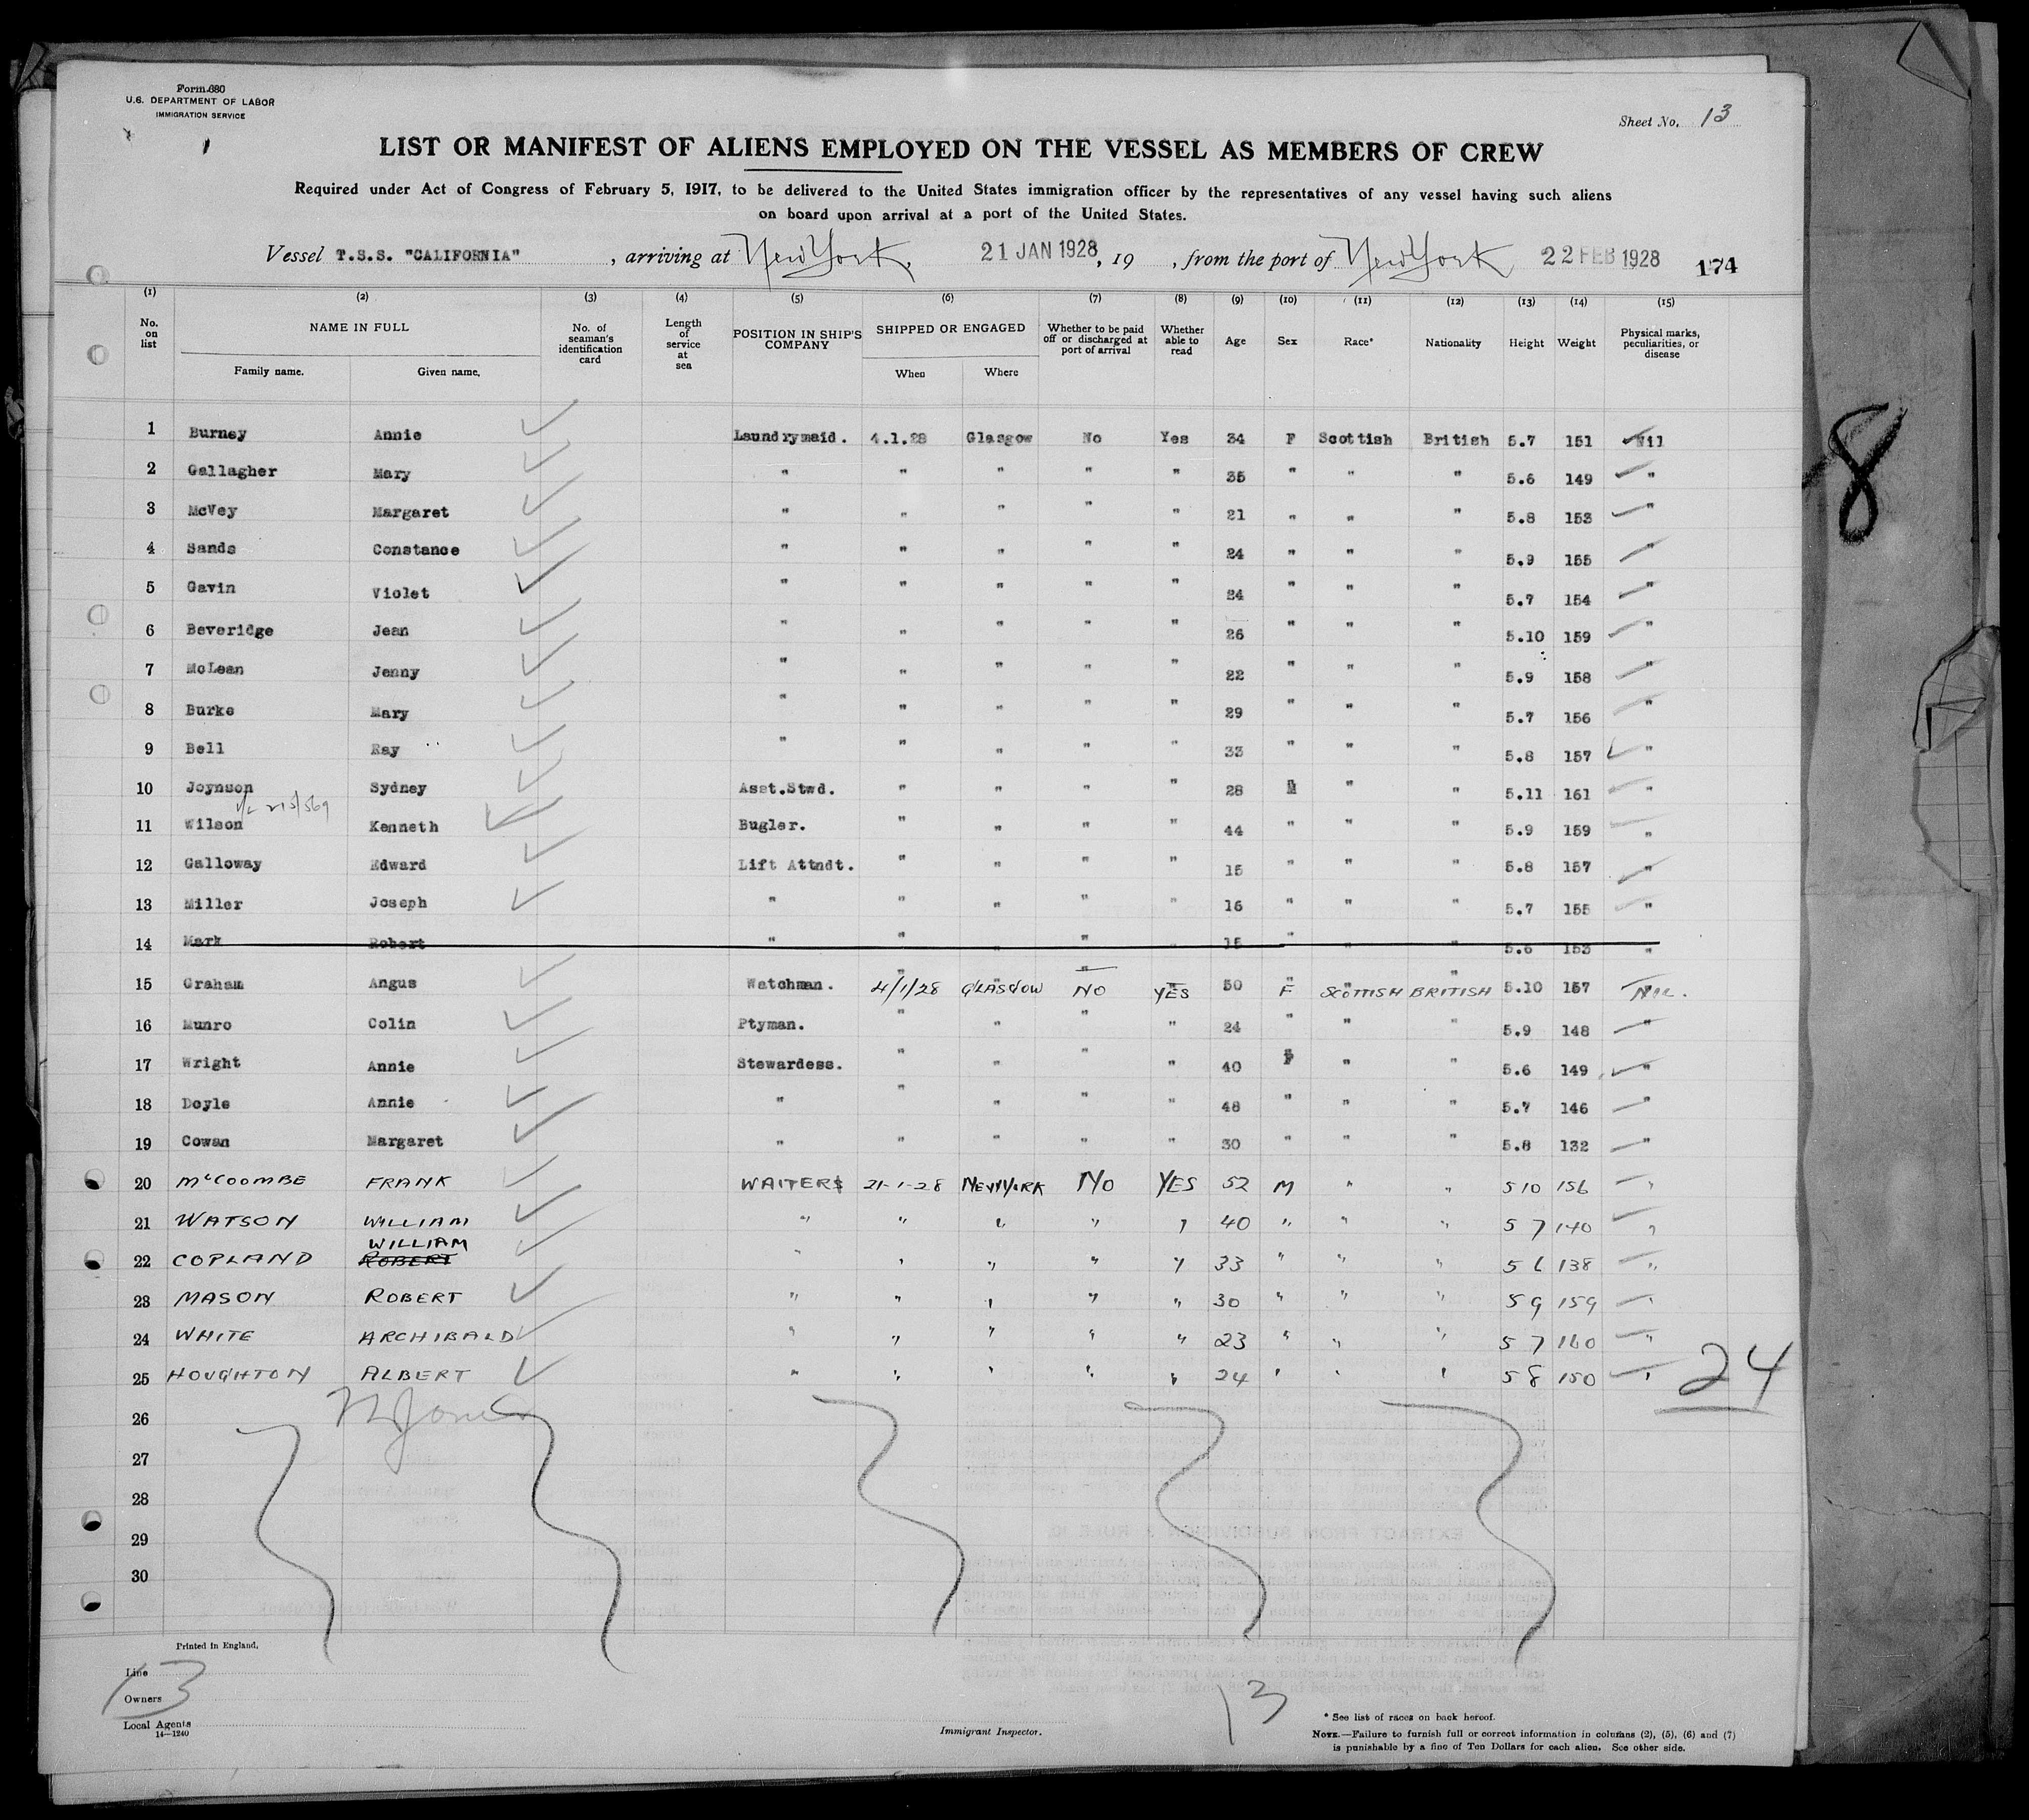 Form 680
U.S. DEPARTMENT OF LABOR
IMMIGRATION SERVICE
Sheet No. 13
LIST OR MANIFEST OF ALIENS EMPLOYED ON THE VESSEL AS MEMBERS OF CREW
Required under Act of Congress of February 5, 1917, to be delivered to the United States immigration officer by the representatives of any vessel having such aliens
on board upon arrival at a port of the United States.
Vessel T.S.S. "CALIFORNIA" , arriving at New York, 21 JAN 1928, 19 , from the port of New York 22 FEB 1928 174
(1) (2) (3) (4) (5) (6) (7) (8) (9) (10) (11) (12) (13) (14) (15)
No. on list NAME IN FULL Family name. Given name. No. of seaman's identification card Length of service at sea POSITION IN SHIP'S COMPANY SHIPPED OR ENGAGED When Where Whether to be paid off or discharged at port of arrival Whether able to read Age Sex Race* Nationality Height Weight Physical marks, peculiarities, or disease
1 Burney Annie Laundrymaid. 4.1.28 Glasgow No Yes 34 F Scottish British 5.7 151 Nil
2 Gallagher Mary " " " " " 35 " " " 5.6 149 "
3 McVey Margaret " " " " " 21 " " " 5.8 153 "
4 Sands Constance " " " " " 24 " " " 5.9 155 "
5 Gavin Violet " " " " " 24 " " " 5.7 154 "
6 Beveridge Jean " " " " " 26 " " " 5.10 159 "
7 McLean Jenny " " " " " 22 " " " 5.9 158 "
8 Burke Mary " " " " " 29 " " " 5.7 156 "
9 Bell Ray " " " " " 33 " " " 5.8 157 "
10 Joynson Sydney Asst.Stwd. " " " " 28 M " " 5.11 161 "
11 Wilson Kenneth Bugler. " " " " 44 " " " 5.9 159 "
12 Galloway Edward Lift Attndt. " " " " 15 " " " 5.8 157 "
13 Miller Joseph " " " " " 16 " " " 5.7 155 "
14 Mark Robert " " " " " 15 " " " 5.6 153 "
15 Graham Angus Watchman. 4/1/28 GLASGOW NO YES 50 F SCOTTISH BRITISH 5.10 157 NIL.
16 Munro Colin Ptyman. " " " " 24 " " " 5.9 148 "
17 Wright Annie Stewardess. " " " " 40 F " " 5.6 149 "
18 Doyle Annie " " " " " 48 " " " 5.7 146 "
19 Cowan Margaret " " " " " 30 " " " 5.8 132 "
20 McCOOMBE FRANK WAITERS 21-1-28 NEW YORK NO YES 52 M " " 5 10 156 "
21 WATSON WILLIAM " " " " " 40 " " " 5 7 140 "
WILLIAM
22 COPLAND ROBERT " " " " " 33 " " " 5 6 138 "
23 MASON ROBERT " " " " " 30 " " " 5 9 159 "
24 WHITE ARCHIBALD " " " " " 23 " " " 5 7 160 "
25 HOUGHTON ALBERT " " " " " 24 " " " 5 8 150 "
24
26
27
28
29
30
8
Printed in England.
Line
13
Owners
Local Agents
14—1240
Immigrant Inspector.
13
* See list of races on back hereof.
NOTE.—Failure to furnish full or correct information in columns (2), (5), (6) and (7)
is punishable by a fine of Ten Dollars for each alien. See other side.